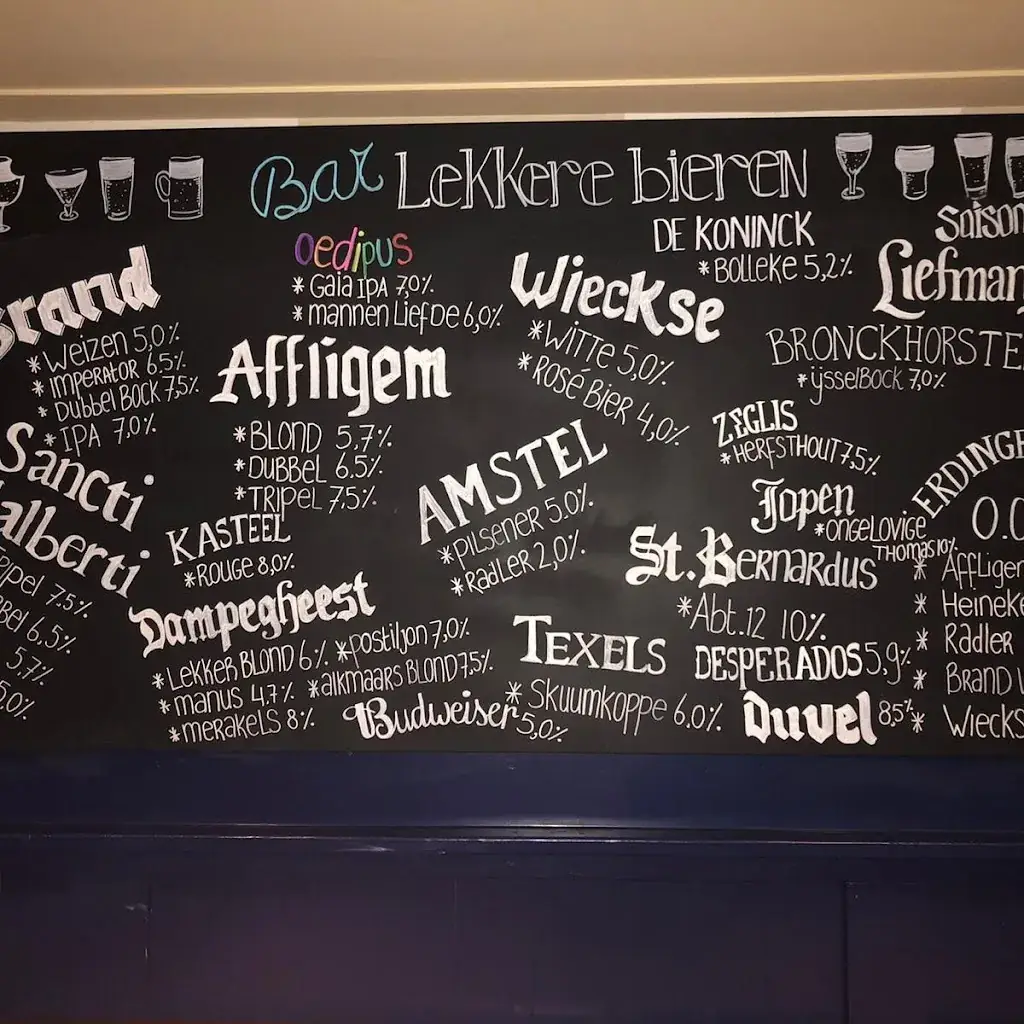 Bar Lekkere bieren
Brand
* Weizen 5,0%
* Imperator 6.5%
* Dubbel Bock 7,5%
* IPA 7,0%
Sancti
7.5%
6.5%
5.7%
5.0%
Oedipus
* Gaia IPA 7,0%
* mannen Liefde 6,0%
Affligem
* BLOND 5,7%
* DUBBEL 6.5%
* TRIPEL 7,5%
KASTEEL
* ROUGE 8,0%
Dampegheest
* LEKKER BLOND 6%
* manus 4.7%
* merakels 8%
* postiljon 7,0%
* alkmaars BLOND 7,5%
Budweiser 5,0%
Wieckse
* WITTE 5,0%
* ROSÉ BIER 4,0%
AMSTEL
* PILSENER 5.0%
* RADLER 2,0%
TEXELS
* SKUUMKOPPE 6.0%
DE KONINCK
* BOLLEKE 5,2%
Saison
BRONCKHORSTE
* ijsselBOCK 7,0%
ZEGLIS
* HERFSTHOUT 7,5%
Jopen
* ongelovige
THOMAS 10%
St. Bernardus
* Abt.12 10%
DESPERADOS 5,9%
Duvel 8,5%
ERDINGE
0.0
* Affligem
* Heineke
* Radler
* BRAND
* WIECKS